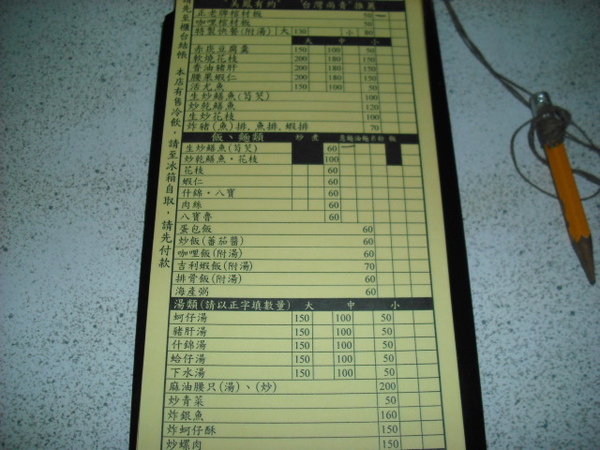 "美鳳有約" "台灣尚青"推薦
正老牌棺材板 50
咖哩棺材板 50
特製快餐(附湯) 大 130 小 80
大 中 小
赤崁豆腐囊 150 100 50
軟燒花枝 200 180 150
香油豬肝 200 180 150
腰果蝦仁 200 180 150
活尤魚 150 100 50
生炒鱔魚(筍茭) 100
炒乾鱔魚 120
生炒花枝 100
炸豬(魚)排、魚排、蝦排 70
飯、麵類 炒 煮
生炒鱔魚(筍茭) 60
炒乾鱔魚・花枝 60
花枝 60
蝦仁 60
什錦・八寶 60
肉絲 60
八寶魯 60
蛋包飯 60
炒飯(蕃茄醬) 60
咖哩飯(附湯) 60
吉利蝦飯(附湯) 70
排骨飯(附湯) 60
海產粥 60
湯類(請以正字填數量) 大 中 小
蚵仔湯 150 100 50
豬肝湯 150 100 50
什錦湯 150 100 50
蛤仔湯 150 100 50
下水湯 150 100 50
麻油腰只(湯)、(炒) 200
炒青菜 50
炸銀魚 160
炸蚵仔酥 150
炒螺肉 150
先至櫃台結帳 本店有售冷飲,請至冰箱自取,請先付款